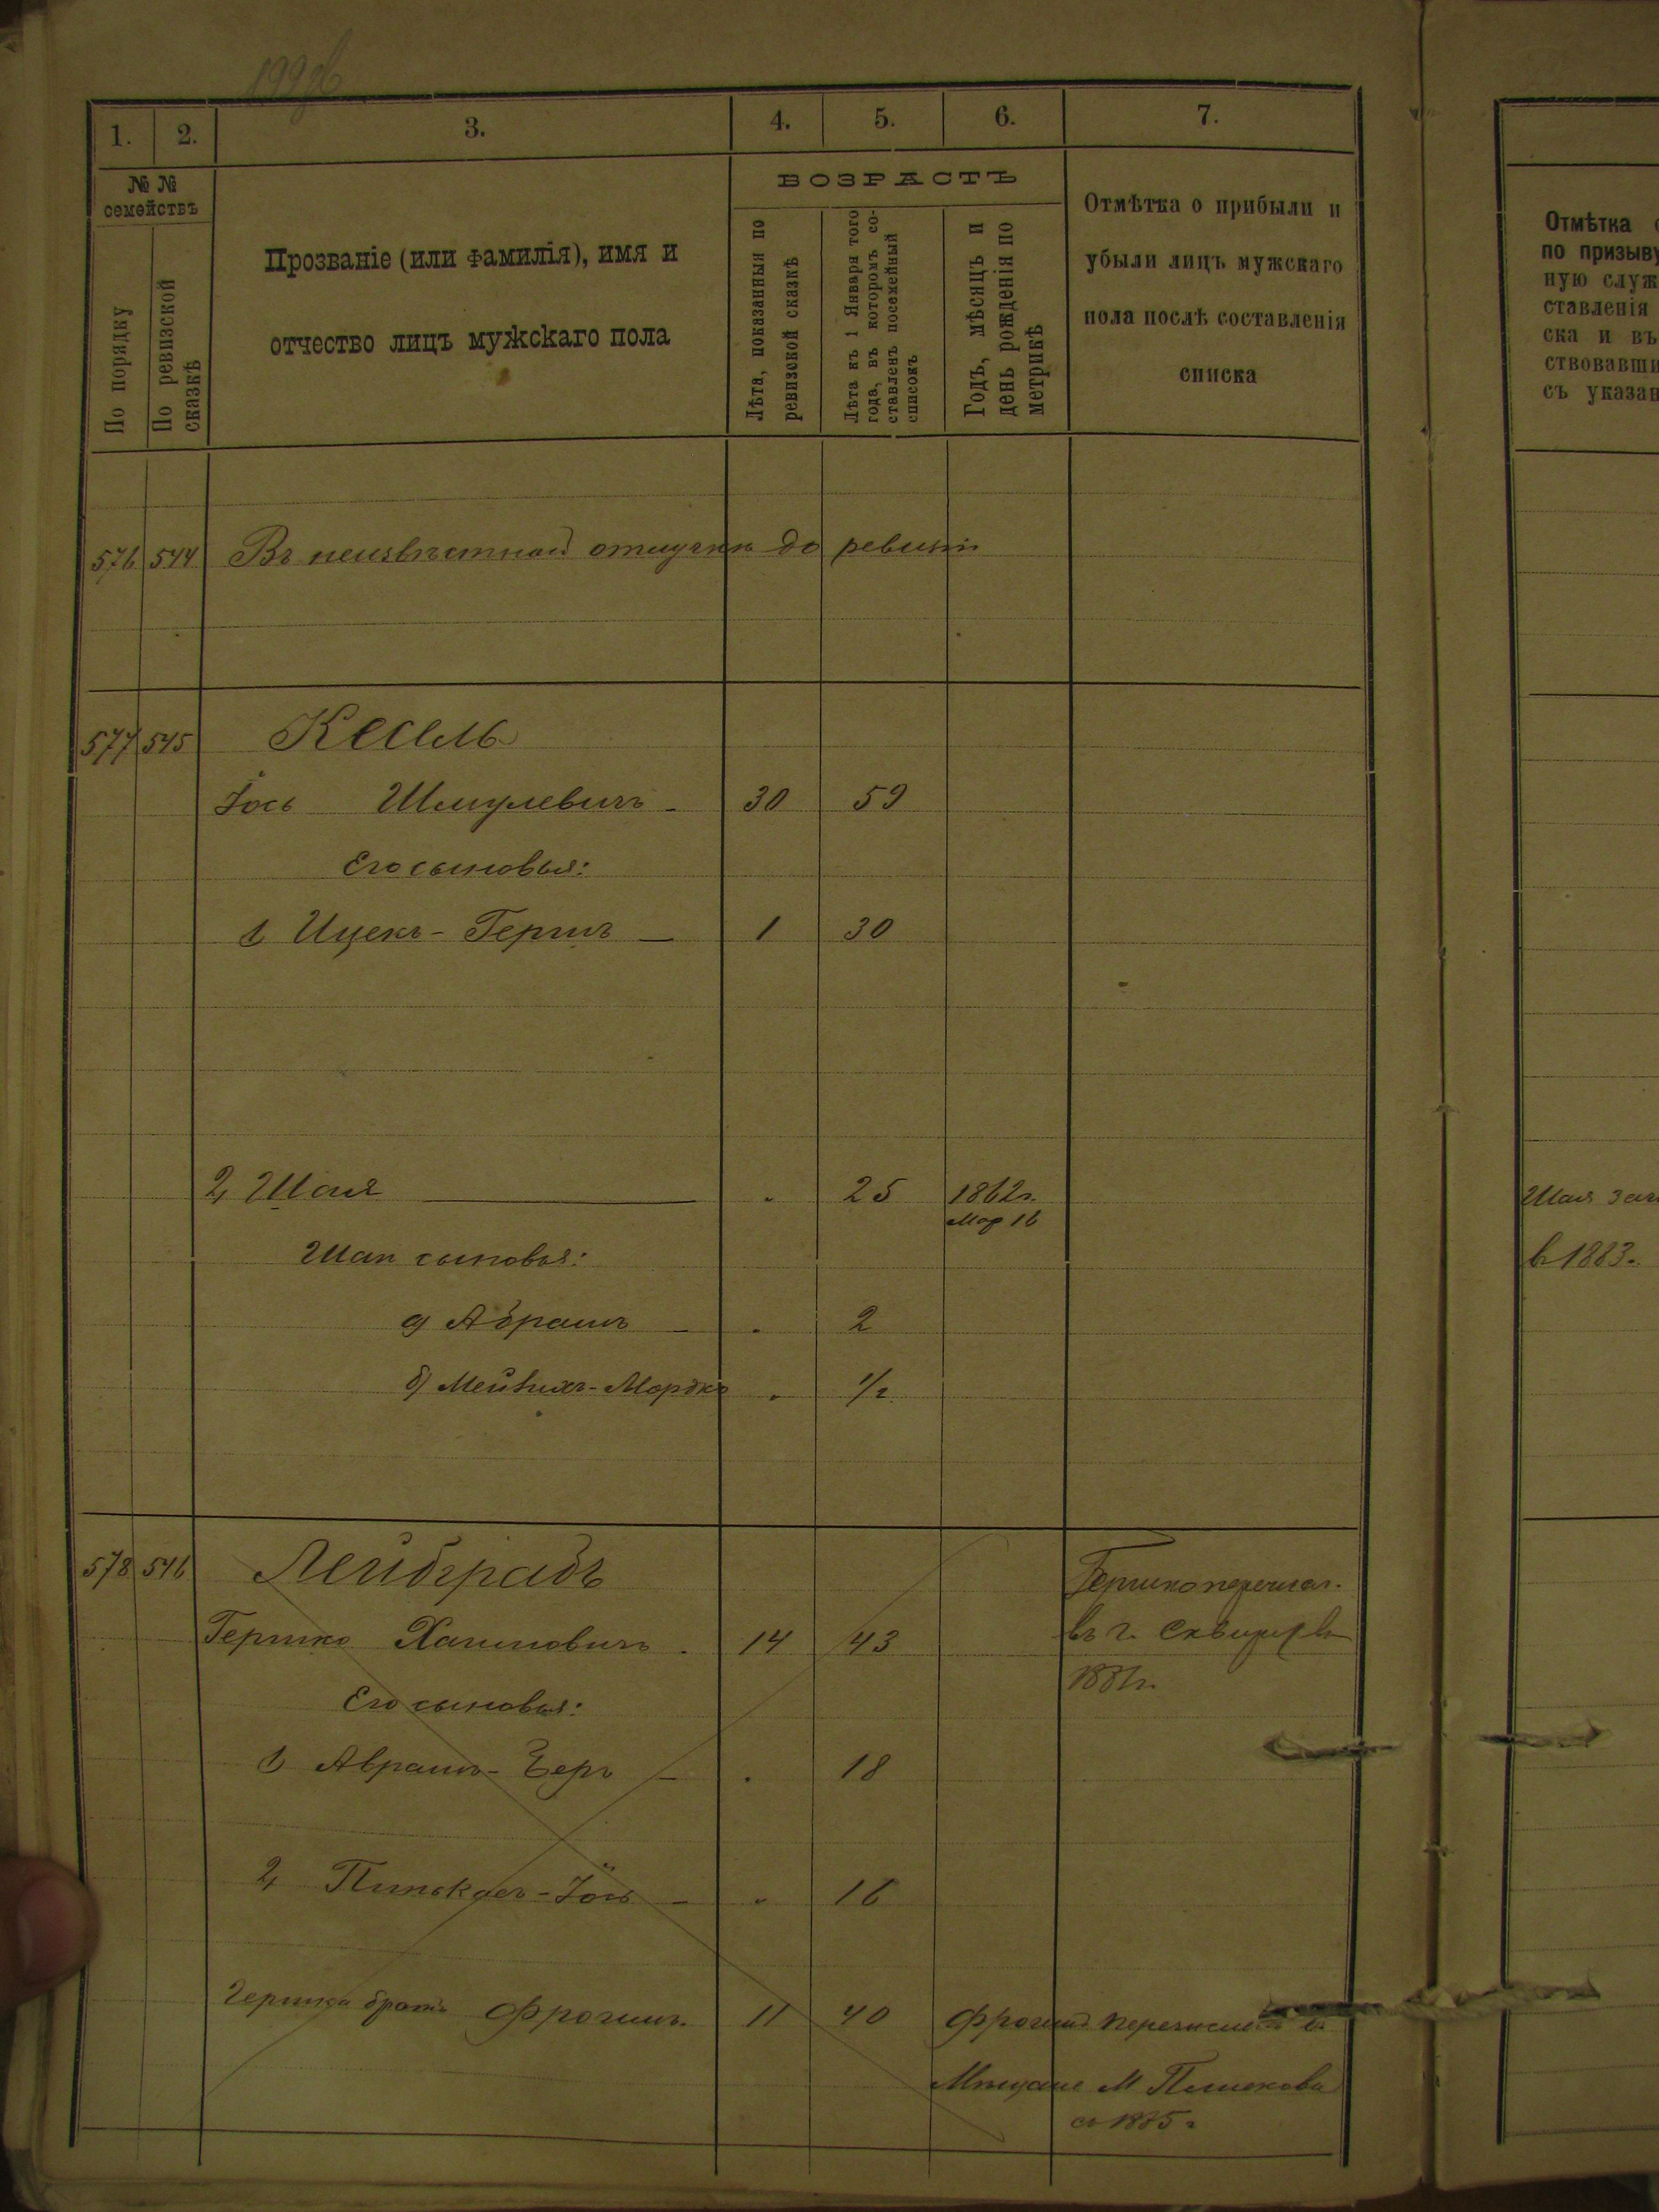 1. 2. 3. 4. 5. 6. 7.
№ №
семействъ
По порядку
По ревизской
сказкѣ
Прозваніе (или фамилія), имя и
отчество лицъ мужскаго пола
ВОЗРАСТЪ
Лѣта, показанныя по
ревизской сказкѣ
Лѣта къ 1 Января того
года, въ которомъ со-
ставленъ посемейный
списокъ
Годъ, мѣсяцъ и
день рожденія по
метрикѣ
Отмѣтка о прибыли и
убыли лицъ мужскаго
пола послѣ составленія
списка
576 544 Въ неизвѣстной отлучкѣ до ревизіи
577 545 Кесель
Іось Шмулевичъ - 30 59
Его сыновья:
1 Ицекъ-Гершъ — 1 30
2, Шая — „ 25 1862г.
Мар 16
Шаи сыновья:
а) Абрамъ — „ 2
б) -Мордко „ 1/2
578 546 Лейбградъ
Гершко Хаимовичъ - 14 43
Его сыновья:
1 Аврамъ-Беръ — „ 18
2, -Іось — „ 16
Гершка братъ Фроимъ. 11 40
Гершко перечисл.
въ г. Сквиру въ
188 г.
Фроимъ перечислен въ
Мѣщане М
съ 1885 г
Отмѣтка
по призыву
ную служ
ставленія
ска и въ
ствовавши
съ указан
Шая
в 1883.